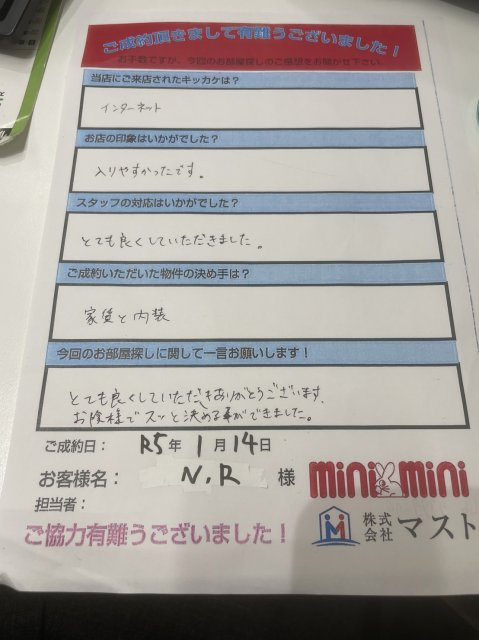 ご成約頂きまして有難うございました！
お手数ですが、今回のお部屋探しのご感想をお聞かせ下さい
当店にご来店されたキッカケは？
インターネット
お店の印象はいかがでした？
入りやすかったです。
スタッフの対応はいかがでした？
とても良くしていただきました。
ご成約いただいた物件の決め手は？
家賃と内装
今回のお部屋探しに関して一言お願いします！
とても良くしていただきありがとうございます、
お陰様でスッと決める事ができました。
ご成約日： R5年 1月14日
お客様名： N.R 様
mini mini
担当者：
株式会社 マスト
ご協力有難うございました！